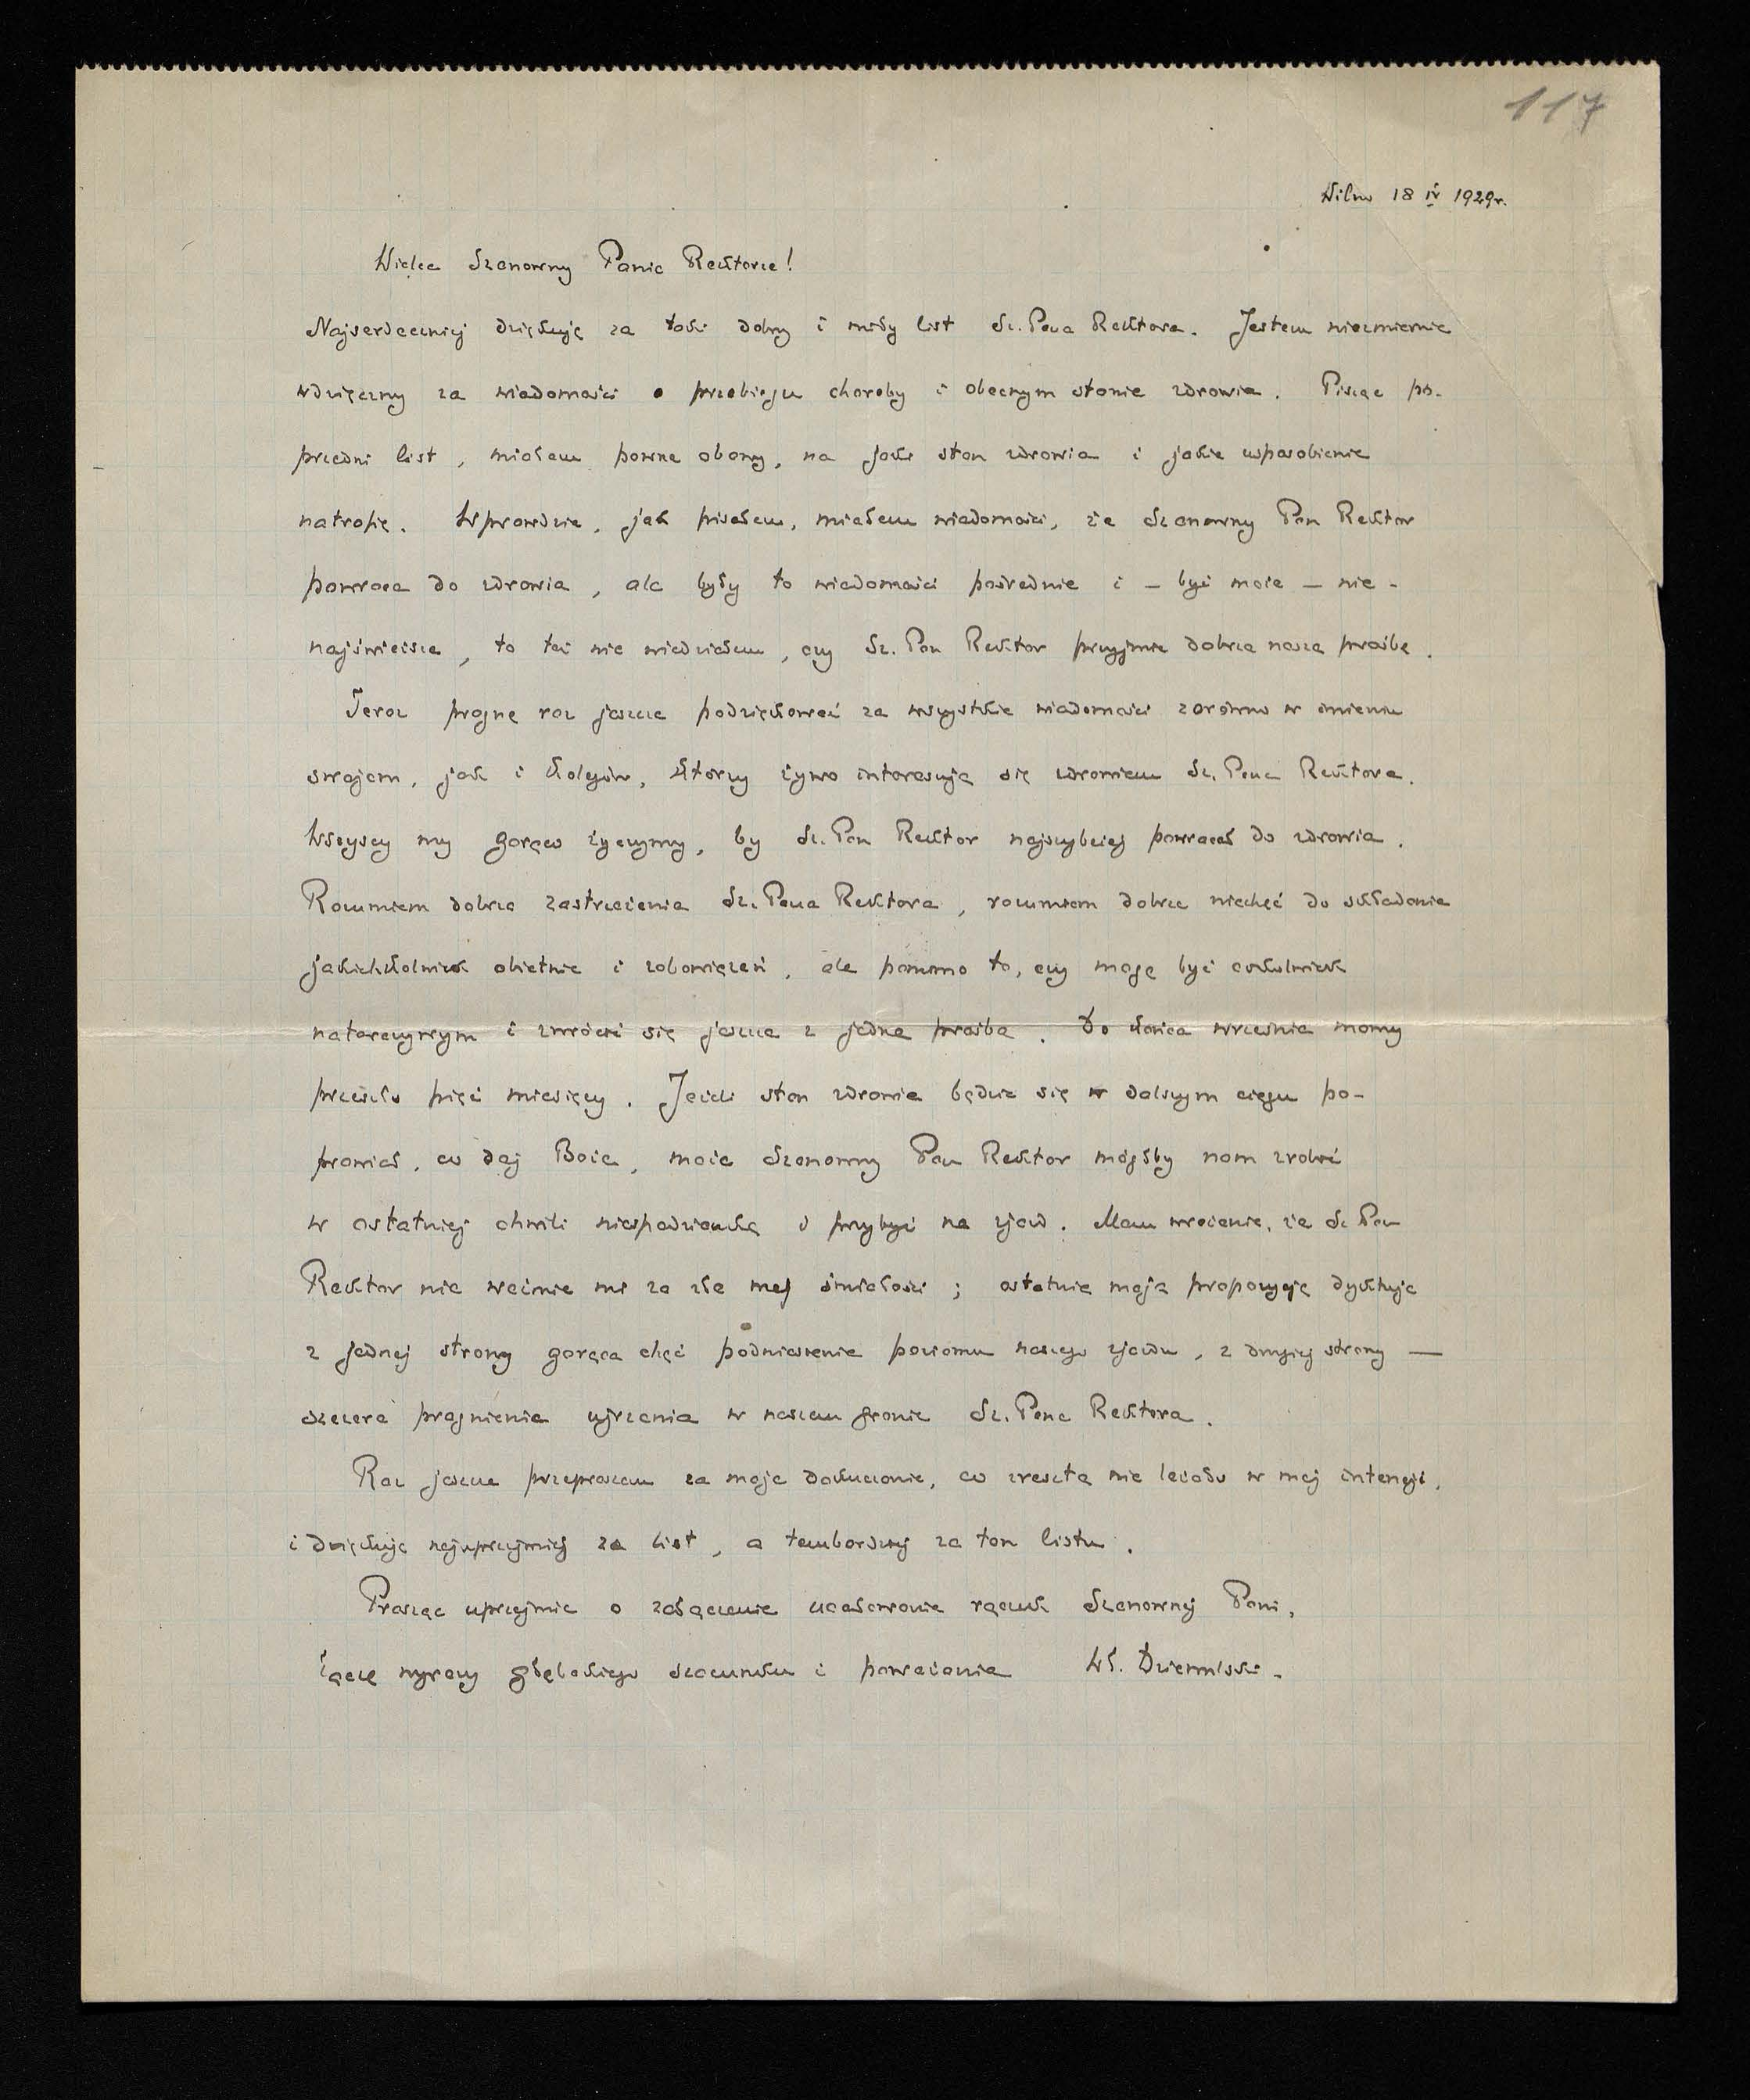 117
Wilno 18 IV 1929r.
Wielce Szanowny Panie Rektorze!
Najserdeczniej dziękuję za taki dobry i miły list Sz. Pana Rektora. Jestem niezmiernie
wdzięczny za wiadomości o przebiegu choroby i obecnym stanie zdrowia. Pisząc po-
przedni list, miałem pewne obawy, na jaki stan zdrowia i jakie usposobienie
natrafię. Wprawdzie, jak pisałem, miałem wiadomości, że Szanowny Pan Rektor
powraca do zdrowia, ale były to wiadomości pośrednie i – być może – nie-
najświeższe, to też nie wiedziałem, czy Sz. Pan Rektor przyjmie dobrze naszą prośbę.
Teraz pragnę raz jeszcze podziękować za wszystkie wiadomości zarówno w imieniu
swojem, jak i Kolegów, którzy żywo interesują się zdrowiem Sz. Pana Rektora.
Wszyscy my gorąco życzymy, by Sz. Pan Rektor najszybciej powracał do zdrowia.
Rozumiem dobrze zastrzeżenia Sz. Pana Rektora, rozumiem dobrze niechęć do składania
jakichkolwiek obietnic i zobowiązań, ale pomimo to, czy mogę być cokolwiek
natarczywym i zwrócić się jeszcze z jedną prośbą. Do końca września mamy
przeszło pięć miesięcy. Jeżeli stan zdrowia będzie się w dalszym ciągu po-
prawiał, co daj Boże, może Szanowny Pan Rektor mógłby nam zrobić
w ostatniej chwili niespodziankę i przybyć na zjazd. Mam wrażenie, że Sz Pan
Rektor nie weźmie mi za złe mej śmiałości; ostatnią moją propozycję dyktuje
z jednej strony gorąca chęć podniesienia poziomu naszego zjazdu, z drugiej strony —
szczere pragnienie ujrzenia w naszem gronie Sz. Pana Rektora.
Raz jeszcze przepraszam za moje dokuczanie, co zresztą nie leżało w mej intencji,
i dziękuję najuprzejmiej za list, a tembardziej za ton listu.
Prosząc uprzejmie o załączenie ucałowania rączek Szanownej Pani,
łączę wyrazy głębokiego szacunku i poważania Wł. Dziewulski.